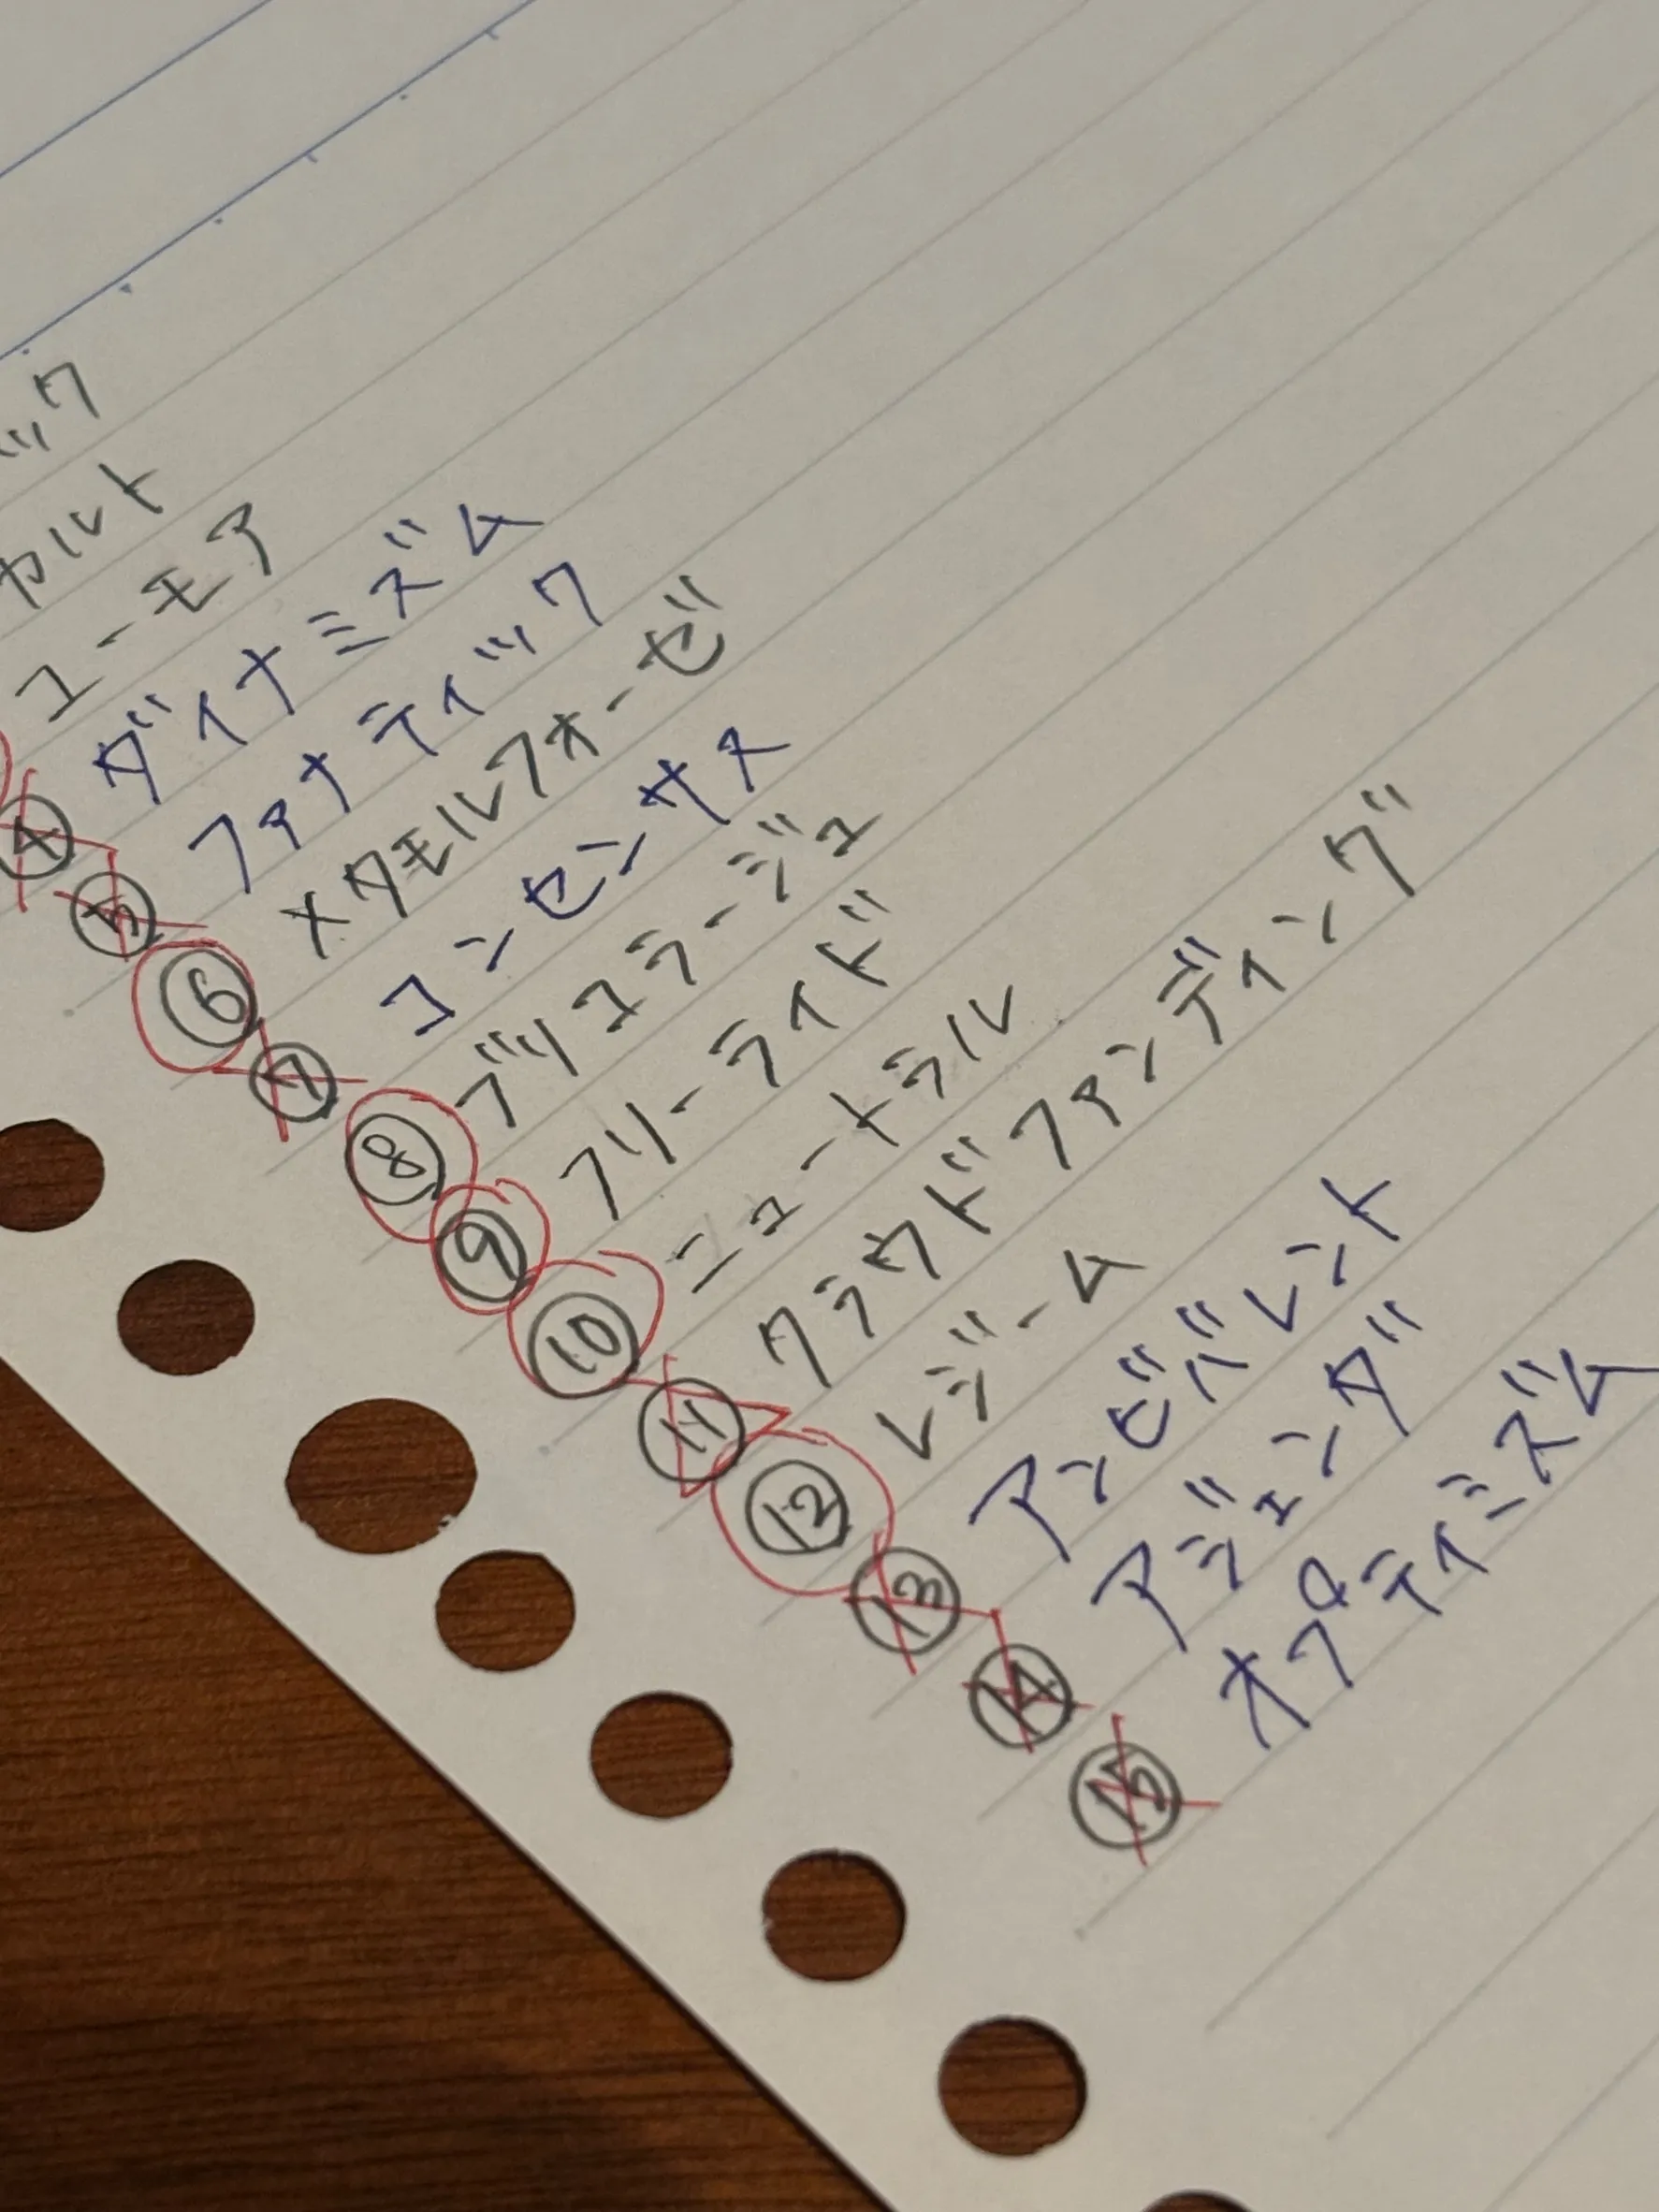 ック
カルト
ユーモア
④ ダイナミズム
⑤ ファナティック
⑥ メタモルフォーゼ
⑦ コンセンサス
⑧ ブリコラージュ
⑨ フリーライド
⑩ ニュートラル
⑪ クラウドファンディング
⑫ レジーム
⑬ アンビバレント
⑭ アジェンダ
⑮ オプティミズム